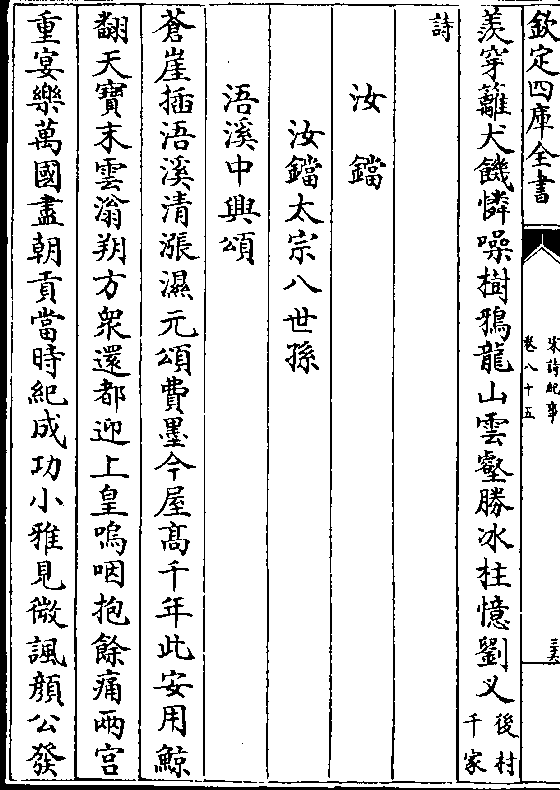 欽定四庫全書
宋詩紀事
卷八十五
三六
羨穿籬犬饑憐噪樹鴉龍山雲壑勝冰柱憶劉乂後村千家
詩
汝鐺
汝鐺太宗八世孫
浯溪中興頌
蒼崖插浯溪清漲濕元頌費墨今屋高千年此安用鯨
翻天寶末雲滃朔方衆還都迎上皇嗚咽抱餘痛兩宫
重宴樂萬國盡朝貢當時紀成功小雅見微諷顔公發